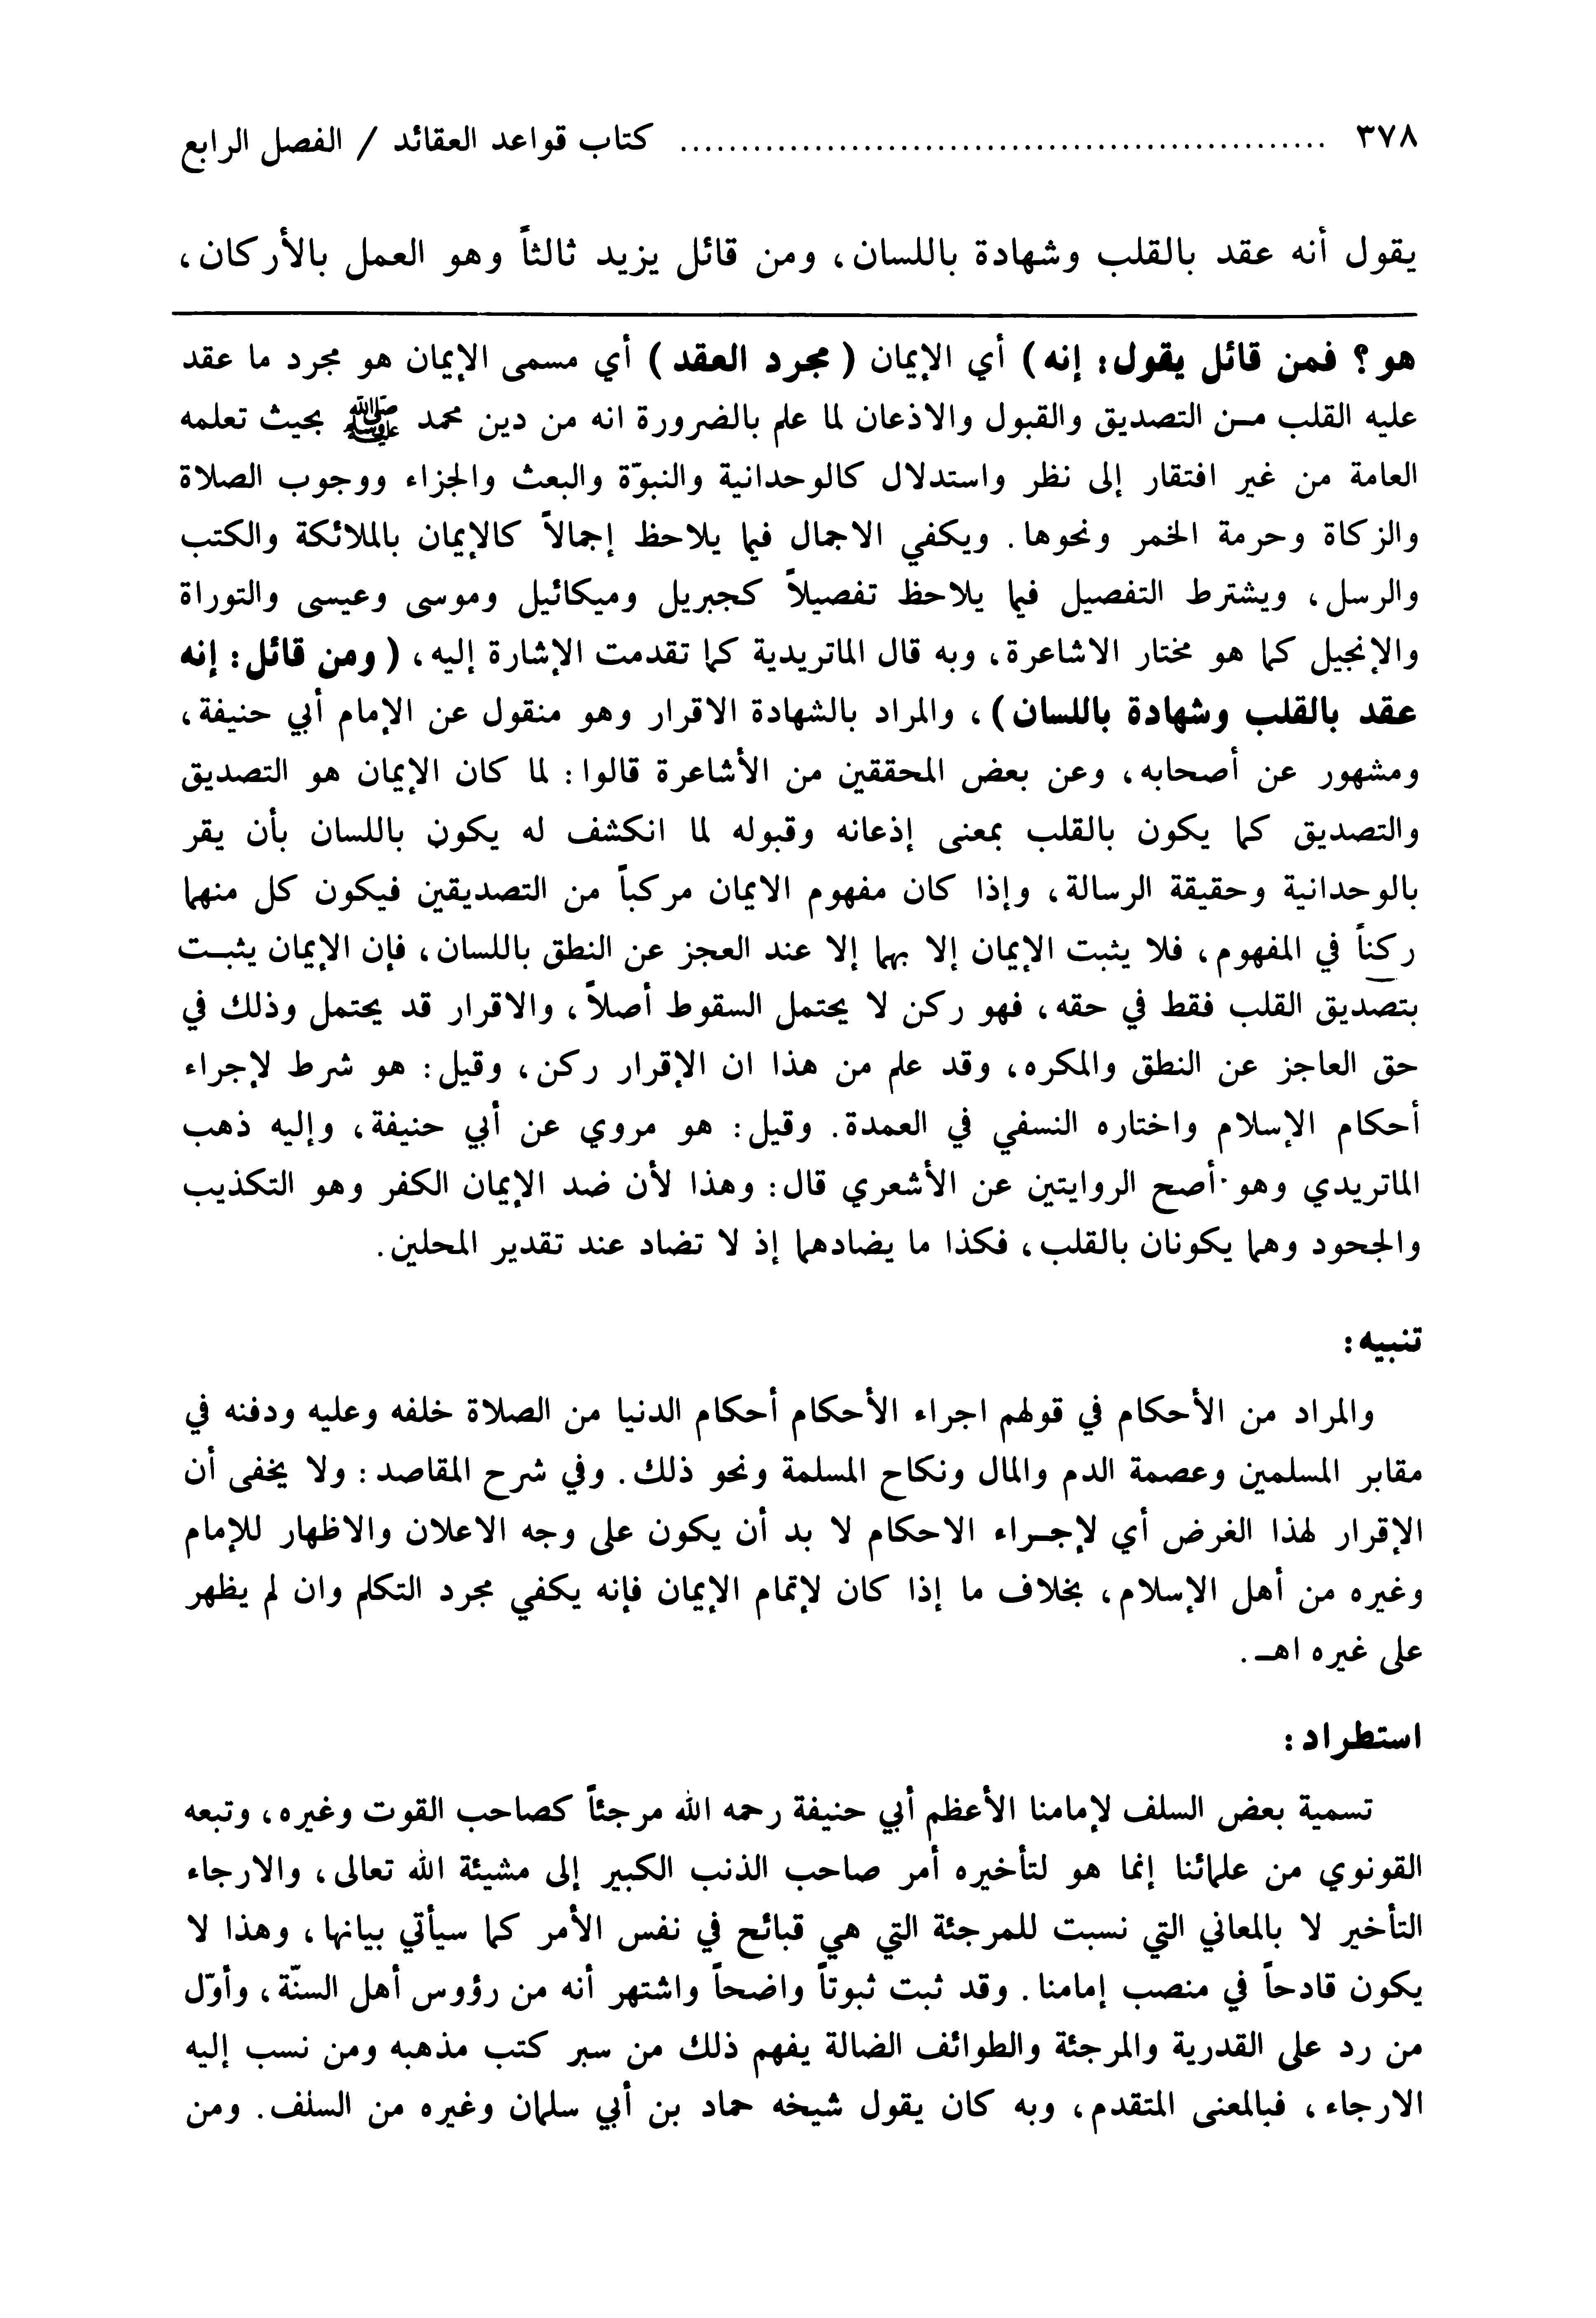 ٣٧٨ .................................................... كتاب قواعد العقائد / الفصل الرابع
يقول أنه عقد بالقلب وشهادة باللسان، ومن قائل يزيد ثالثاً وهو العمل بالأركان،
هو؟ فمن قائل يقول: إنه) أي الإيمان (مجرد العقد) أي مسمى الإيمان هو مجرد ما عقد
عليه القلب مـن التصديق والقبول والاذعان لما علم بالضرورة انه من دين محمد ﷺ بحيث تعلمه
العامة من غير افتقار إلى نظر واستدلال كالوحدانية والنبوّة والبعث والجزاء ووجوب الصلاة
والزكاة وحرمة الخمر ونحوها. ويكفي الاجمال فيما يلاحظ إجمالاً كالإيمان بالملائكة والكتب
والرسل، ويشترط التفصيل فيما يلاحظ تفصيلاً كجبريل وميكائيل وموسى وعيسى والتوراة
والإنجيل كما هو مختار الاشاعرة، وبه قال الماتريدية كما تقدمت الإشارة إليه، (ومن قائل: إنه
عقد بالقلب وشهادة باللسان)، والمراد بالشهادة الاقرار وهو منقول عن الإمام أبي حنيفة،
ومشهور عن أصحابه، وعن بعض المحققين من الأشاعرة قالوا: لما كان الإيمان هو التصديق
والتصديق كما يكون بالقلب بمعنى إذعانه وقبوله لما انكشف له يكون باللسان بأن يقر
بالوحدانية وحقيقة الرسالة، وإذا كان مفهوم الايمان مركباً من التصديقين فيكون كل منهما
ركناً في المفهوم، فلا يثبت الإيمان إلا بهما إلا عند العجز عن النطق باللسان، فإن الإيمان يثبـت
بتصديق القلب فقط في حقه، فهو ركن لا يحتمل السقوط أصلاً، والاقرار قد يحتمل وذلك في
حق العاجز عن النطق والمكره، وقد علم من هذا ان الإقرار ركن، وقيل: هو شرط لإجراء
أحكام الإسلام واختاره النسفي في العمدة. وقيل: هو مروي عن أبي حنيفة، وإليه ذهب
الماتريدي وهو أصح الروايتين عن الأشعري قال: وهذا لأن ضد الإيمان الكفر وهو التكذيب
والجحود وهما يكونان بالقلب، فكذا ما يضادهما إذ لا تضاد عند تقدير المحلين.
تنبيه:
والمراد من الأحكام في قولهم اجراء الأحكام أحكام الدنيا من الصلاة خلفه وعليه ودفنه في
مقابر المسلمين وعصمة الدم والمال ونكاح المسلمة ونحو ذلك. وفي شرح المقاصد: ولا يخفى أن
الإقرار لهذا الغرض أي لإجـراء الاحكام لا بد أن يكون على وجه الاعلان والاظهار للإمام
وغيره من أهل الإسلام، بخلاف ما إذا كان لإتمام الإيمان فإنه يكفي مجرد التكلم وان لم يظهر
على غيره اهـ.
استطراد:
تسمية بعض السلف لإمامنا الأعظم أبي حنيفة رحمه الله مرجئاً كصاحب القوت وغيره، وتبعه
القونوي من علمائنا إنما هو لتأخيره أمر صاحب الذنب الكبير إلى مشيئة الله تعالى، والارجاء
التأخير لا بالمعاني التي نسبت للمرجئة التي هي قبائح في نفس الأمر كما سيأتي بيانها، وهذا لا
يكون قادحاً في منصب إمامنا. وقد ثبت ثبوتاً واضحاً واشتهر أنه من رؤوس أهل السنّة، وأوّل
من رد على القدرية والمرجئة والطوائف الضالة يفهم ذلك من سبر كتب مذهبه ومن نسب إليه
الارجاء، فبالمعنى المتقدم، وبه كان يقول شيخه حماد بن أبي سلمان وغيره من السلف. ومن